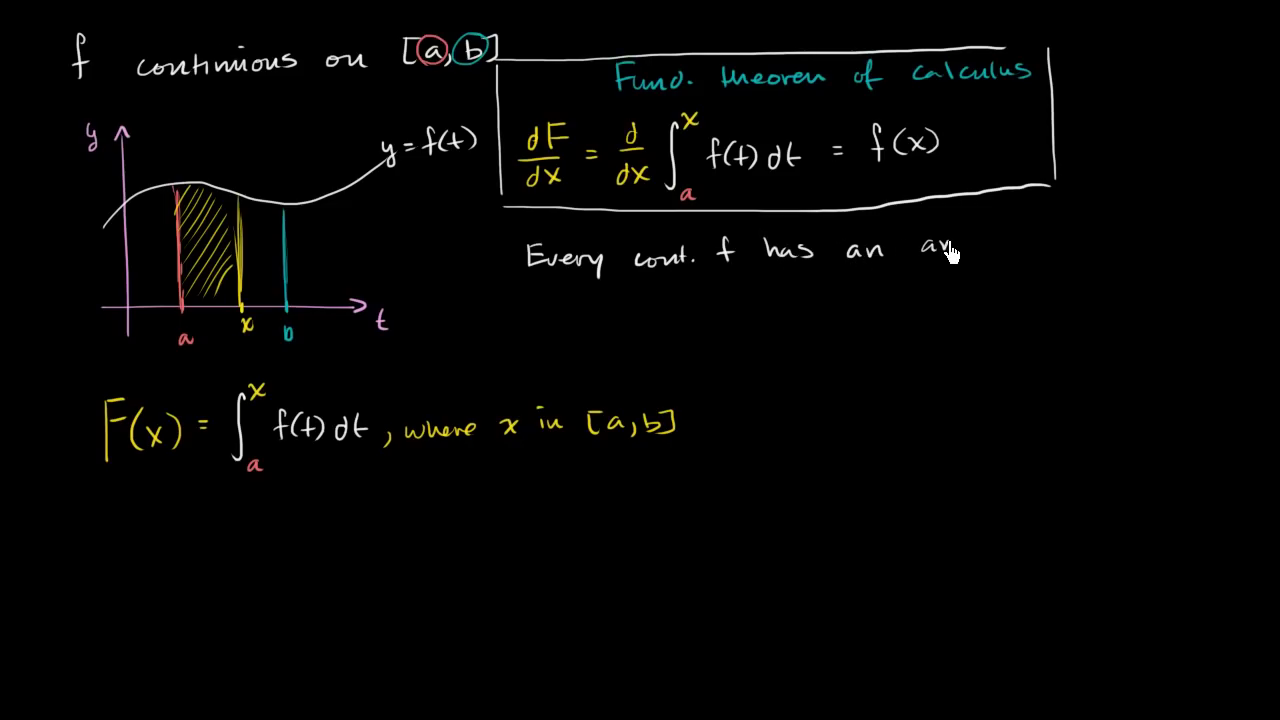 f continuous on [a, b]
Fund. theorem of calculus
dF/dx = d/dx ∫ₐˣ f(t) dt = f(x)
y
y = f(t)
Every cont. f has an an
a
x
b
t
F(x) = ∫ₐˣ f(t) dt, where x in [a, b]